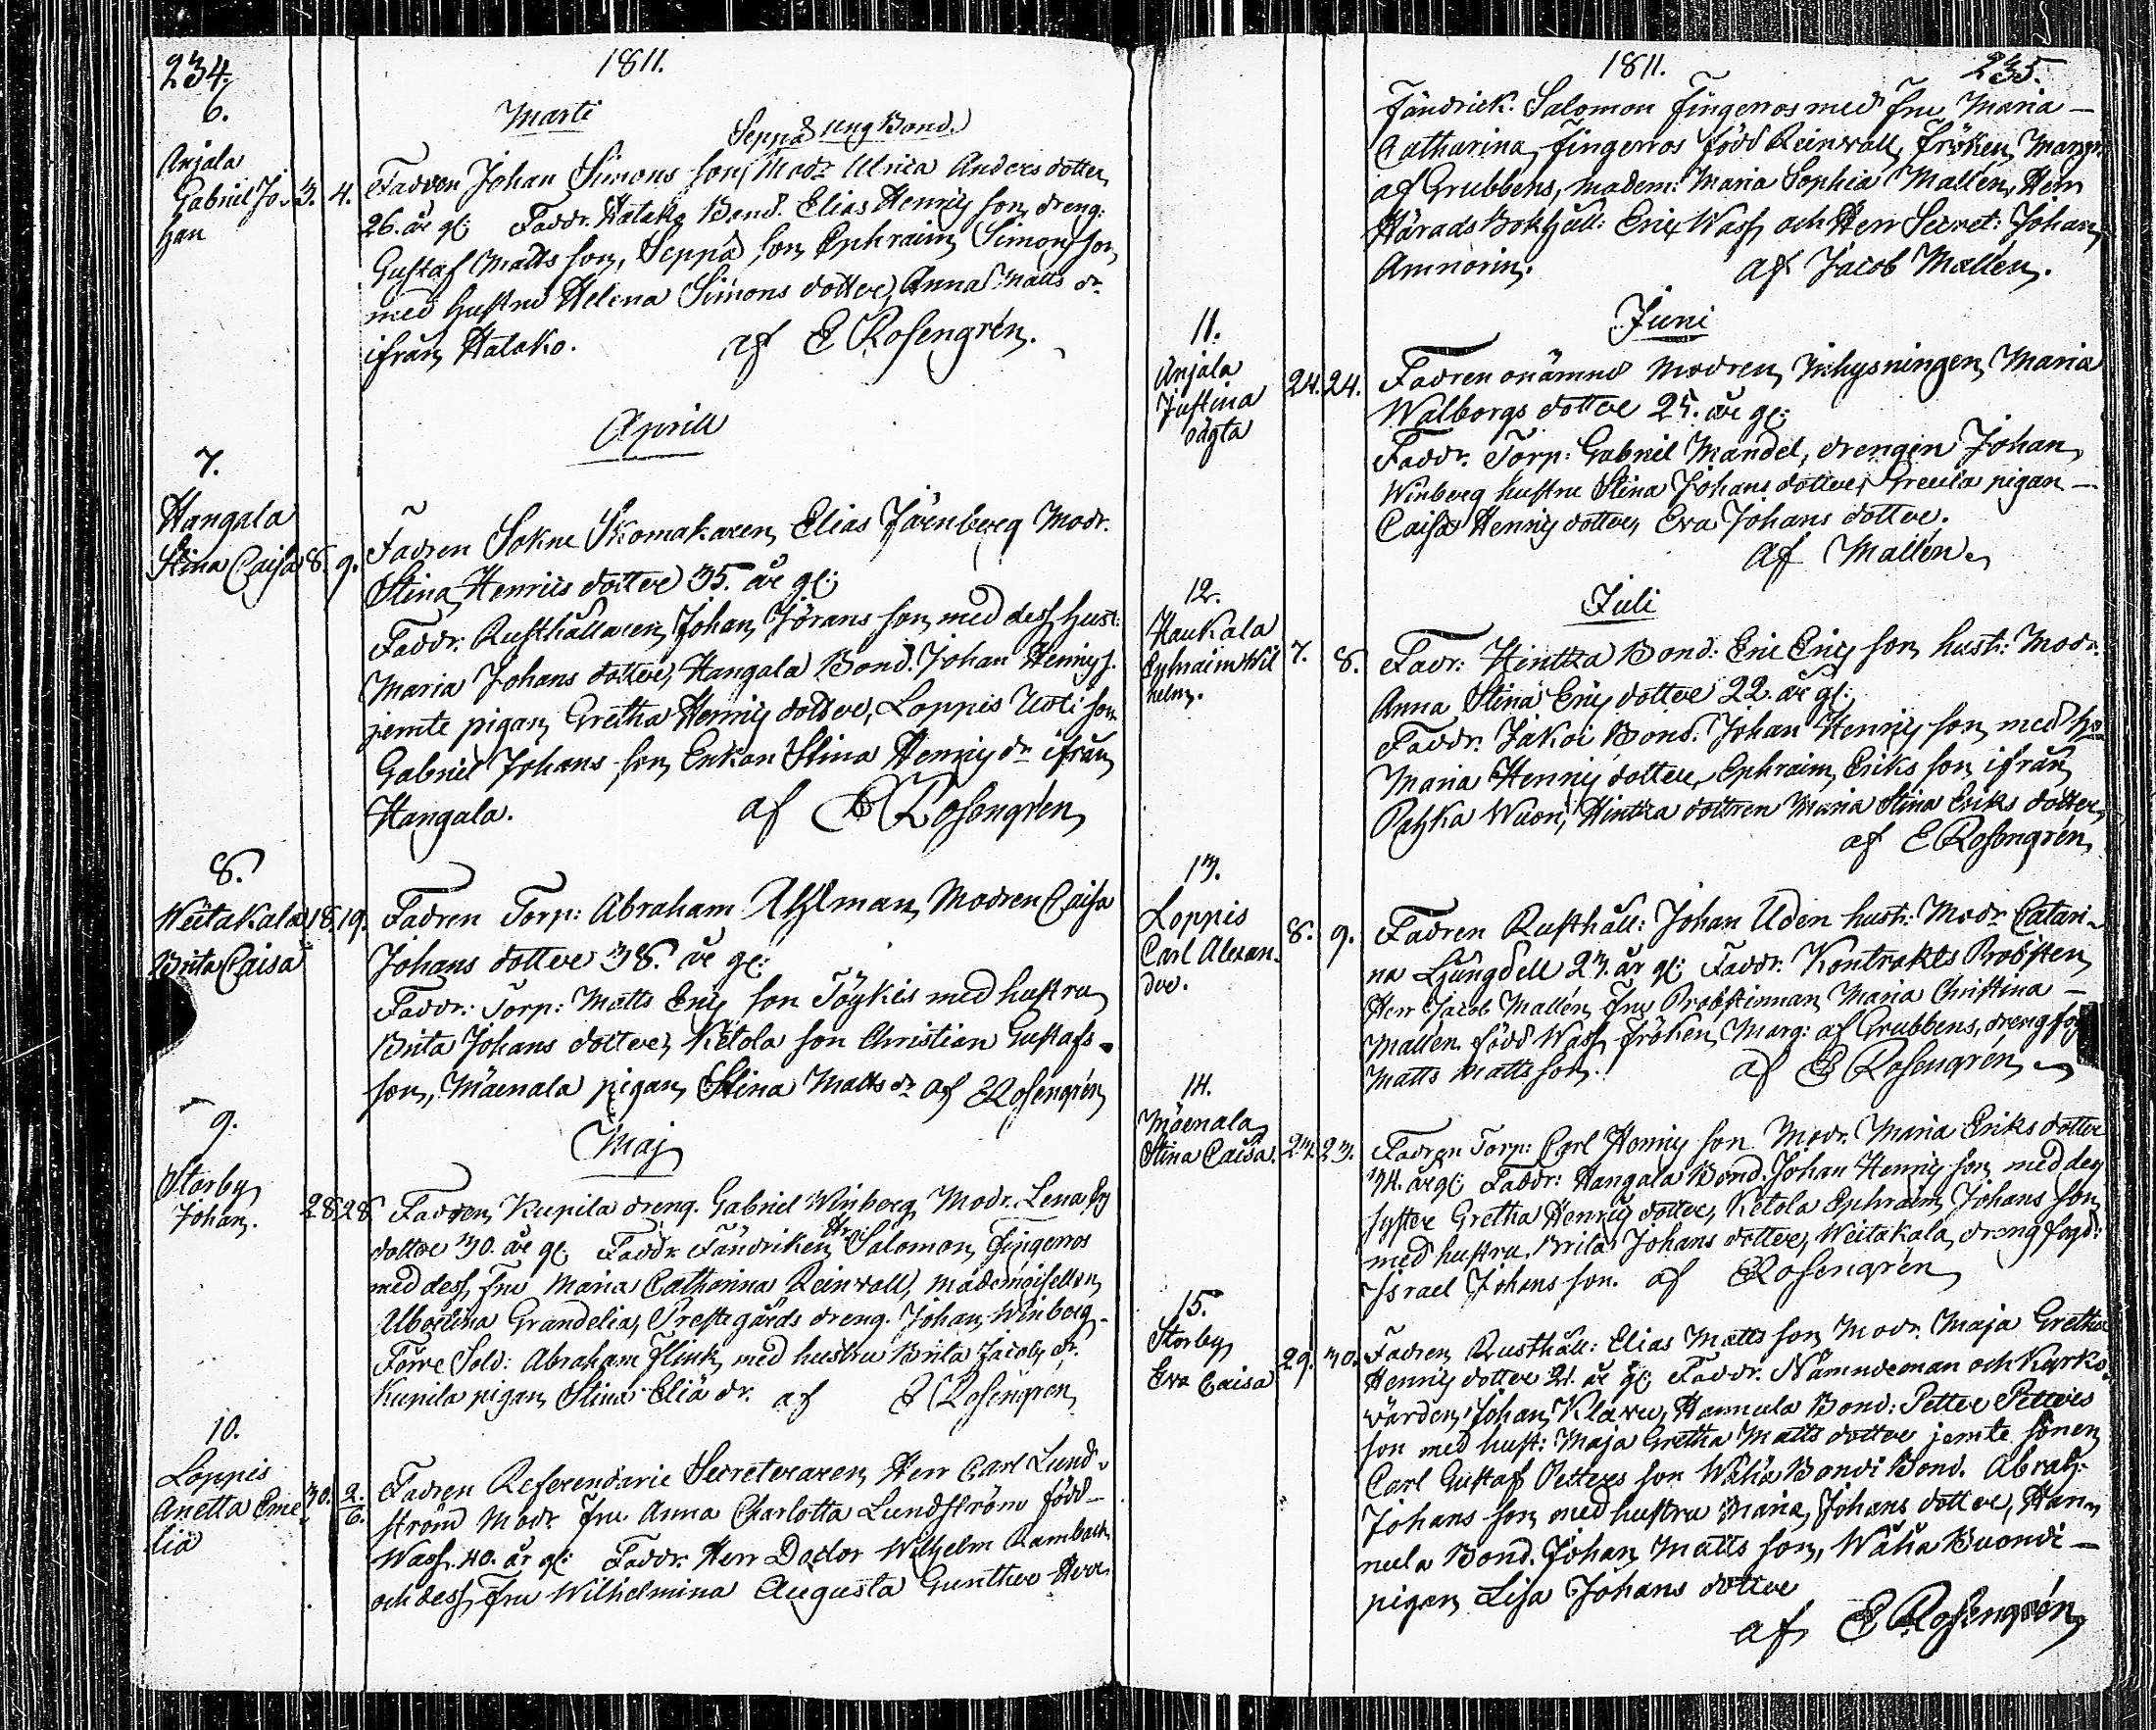 234.
1811.
6.
Marti
Seppä ung Bond.
Anjala
Gabriel Jo-
han
3. 4.
Fadren Johan Simons son, Modr Ulrica Anders dotter
26. år gl: Faddr. Hatako Bond. Elias Henrics son, dreng:
Gustaf Matts son, Seppä son Ephraim Simons son
med hustru Helena Simons dotter, Anna Matts dr
ifrån Hatako. af E Rosengrén.
Aprill
7.
Hangala
Stina Caisa
8. 9.
Fadren Sokne Skomakaren Elias Järnberg Modr.
Stina Henrics dotter 35. år gl:
Faddr. Rusthållaren Johan Jörans son med dess hust:
Maria Johans dotter, Hangala Bond. Johan Henrics s.
jemte pigan Gretha Henrics dotter, Loppis Uoti son
Gabriel Johans son, Enkan Stina Henrics dr ifrån
Hangala. af E Rosengrén
8.
Weitakala
Brita Caisa
18. 19.
Fadren Torp: Abraham Ahlman, Modren Caisa
Johans dotter 38. år gl:
Faddr: Torp: Matts Erics son Töykis med hustru
Brita Johans dotter, Ketola son Christian Gustafs-
son, Mäenala pigan Stina Matts dr af E Rosengrén
Maj
9.
Storby
Johan.
28. 28.
Fadren Kupila dreng. Gabriel Winberg Modr. Lena
dotter 30. år gl. Faddr. Fändriken Hr Salomon Fingerroos
med dess fru Maria Catharina Reinwall, mademoisellen
Albertina Grandelia, Prestegårds dreng. Johan Winberg
Förre Sold: Abraham Flink med hustru Brita Jacobs dr.
Kupila pigan Stina Eliä dr. af E Rosengren
10.
Loppis
Anetta Eme-
lia
30. 2/6.
Fadren Referendarie Secreteraren Herr Carl Lund-
ström Modr. fru Anna Charlotta Lundström född
Wass. 40. år gl: Faddr. Herr Doctor Wilhelm Rambach
och dess fru Wilhelmina Augusta Gunther Herr
1811. 235.
Fändrick. Salomon Fingerros med fru Maria
Catharina Fingerros född Reinwall, fröken Margr.
af Grubbens, madem: Maria Sophia Mallén, Herr
Härads Bokhåll: Eric Wass och Herr Secret: Johan
Amnorin. af Jacob Mallén.
Juni
11.
Anjala
Justina
oägta
24. 24.
Fadren onämnd Modren Inhysningen Maria
Walborgs dotter 25. år gl:
Faddr. Torp: Gabriel Mandel, drengen Johan
Winberg hustru Stina Johans dotter, Precila pigan
Caisa Henrics dotter, Eva Johans dotter.
af Mallén
Juli
12.
Haukala
Ephraim Wil
helm.
7. 8.
Fadr: Hintka Bond: Eric Erics son hust: Modr.
Anna Stina Erics dotter 22. år gl:
Faddr. Jakoi Bond. Johan Henrics son med
Maria Henrics dotter, Ephraim Eriks son ifrån
Pahka Wuori, Hintka dottren Maria Stina Eriks dotter
af E Rosengrén
13.
Loppis
Carl Alexan.
der.
8. 9.
Fadren Rusthåll: Johan Uden hust: Modr Catari-
na Ljungdell 23. år gl: Faddr. Kontrakts Probsten
Herr Jacob Mallén, fru Probstinnan Maria Christina
Mallén född Wass, fröken Marg: af Grubbens, dreng fog
Matts Matts son. af E Rosengrén
14.
Mäenala
Stina Caisa.
23. 23.
Fadren Torp: Carl Henrics son Modr. Maria Eriks dotter
34. år gl. Faddr: Hangala Bond. Johan Henrics son med dess
syster Gretha Henrics dotter, Ketola Ephraim Johans son
med hustru Brita Johans dotter, Weitakala dreng fogd:
Israel Johans son. af E Rosengrén
15.
Storby
Eva Caisa
29. 30.
Fadren Rusthåll: Elias Matts son Modr. Maja Gretha
Henrics dotter 21. år gl. Faddr. Nämndeman och Kyrko-
värden Johan Klawu, Hannula Bond: Petter Petters
son med hust: Maja Gretha Matts dotter jemte sonen
Carl Gustaf Petters son Wähä Bondi Bond. Abrah:
Johans son med hustru Maria Johans dotter, Han-
nula Bond. Johan Matts son, Wähä Buondi
pigan Lisa Johans dotter
af E Rosengrén